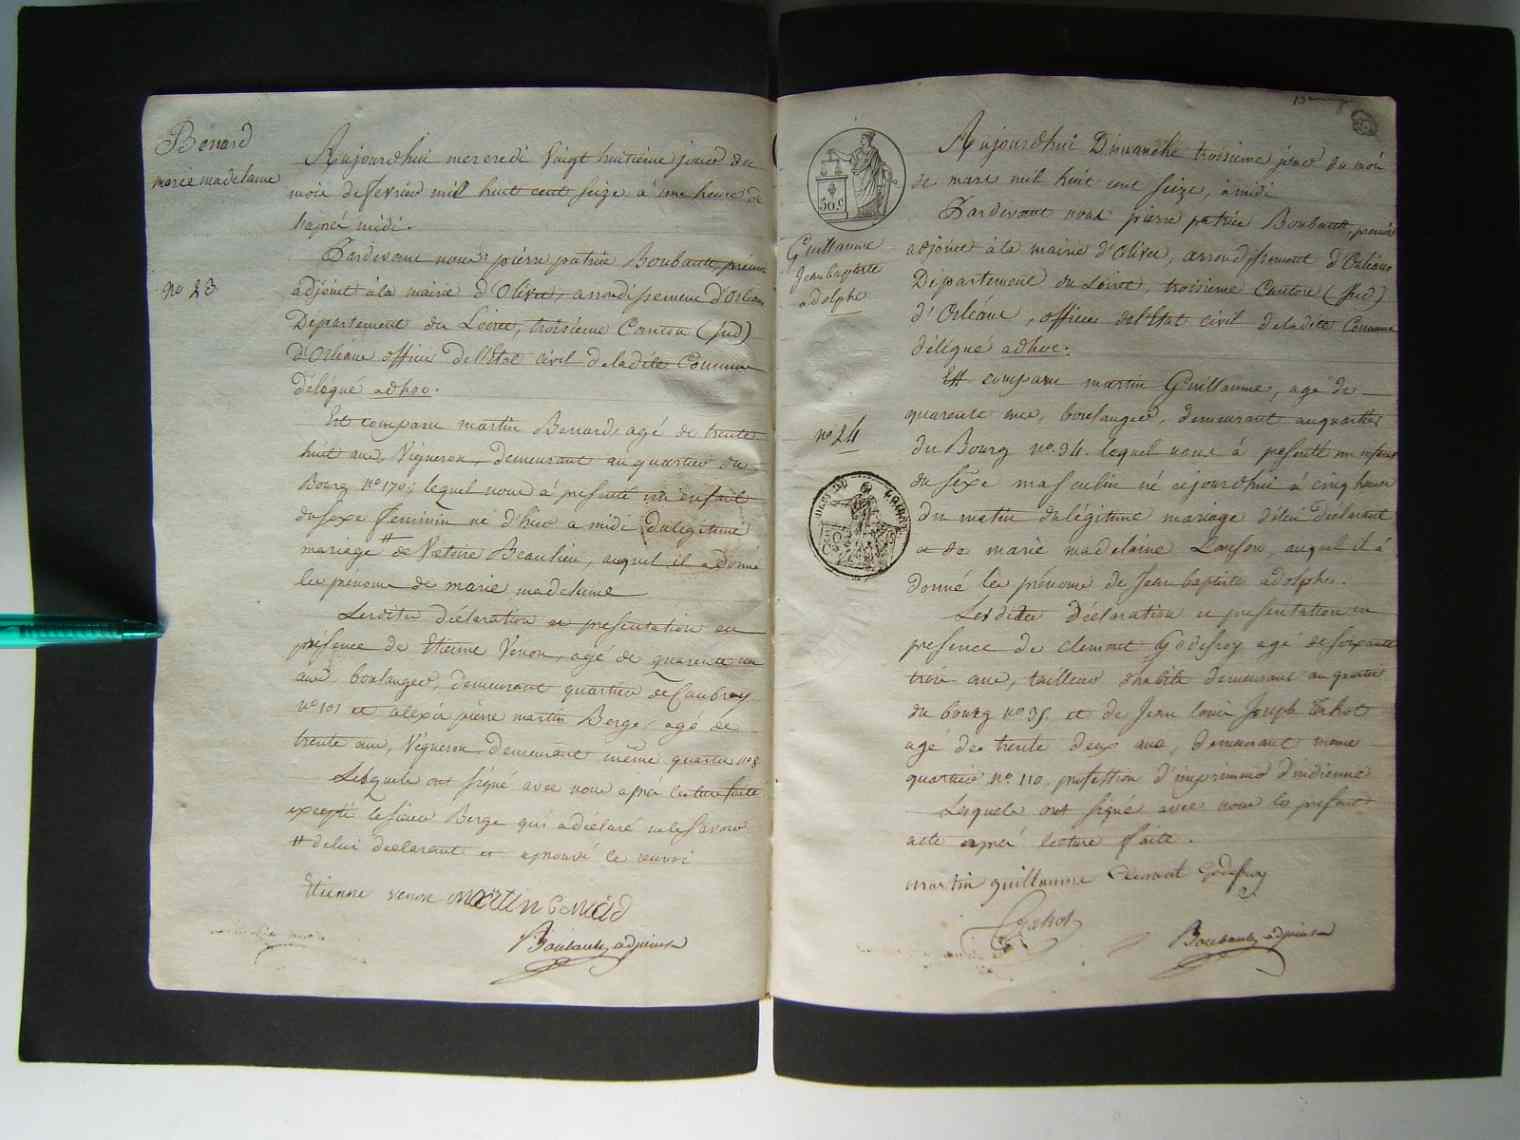 Benard
marie madelaine
no 23
Aujourdhui mercredi vingt huitieme jour du
mois de fevrier mil huit cent seize à une heure de
hapré midi.
Pardevant nous pierre patrice Boubault, premier
adjoint à la mairie d'Olivet, arrondissement d'Orléans
Departement du Loiret, troisieme Canton (sud)
d'Orléans officier de l'Etat civil de ladite Commune
délégué adhoc.
Est comparu martin Benard, agé de trente
huit ans, Vigneron, demeurant au quartier du
Bourg no 170; lequel nous a presenté un enfant
du sexe feminin né d'hier a midi du légitime
mariage # de Beaulieu, auquel il a donné
les prenoms de marie madelaine
Lesdites déclaration et presentation en
présence de Etienne Venon, agé de quarente un
ans, boulanger, demeurant quartier de Caubray
no 101 et alexis pierre martin Berge, agé de
trente ans, Vigneron demeurant même quartier no 8
Lesquels ont signé avec nous après lecture faite
excepté le sieur Berge qui a déclaré ne le savoir
# de lui declarant et aprouvé le renvoi
Etienne venon martin benard
Boubault, adjoint
50 c
Guillaume
Jean baptiste
adolphe
no 24
Aujourdhui Dimanche troisieme jour du mois
de mars mil huit cent seize, à midi
Pardevant nous pierre patrice Boubault, premier
adjoint à la mairie d'Olivet, arrondissement d'Orléans
Departement du Loiret, troisieme Canton (sud)
d'Orléans, officier de l'Etat civil de ladite Commune
délégué adhoc.
Est comparu martin Guillaume, agé de
quarente ans, boulanger, demeurant au quartier
du Bourg no. 34. lequel nous à presenté un enfant
du sexe masculin né aujourdhui à cinq heures
du matin du légitime mariage de lui declarant
et de marie madelaine, auquel il à
donné les prénoms de Jean baptiste adolphe.
Lesdites déclaration et presentation en
presence de clement Godefroy agé de soixante
trois ans, tailleur d'habits demeurant au quartier
du bourg no 35. et de Jean louis Joseph Cahot
agé de trente deux ans, demeurant meme
quartier no. 110. profession d'imprimeur d'indienne
Lesquels ont signé avec nous le present
acte après lecture faite.
martin guillaume Clement Godefroy
Cahot
Boubault, adjoint